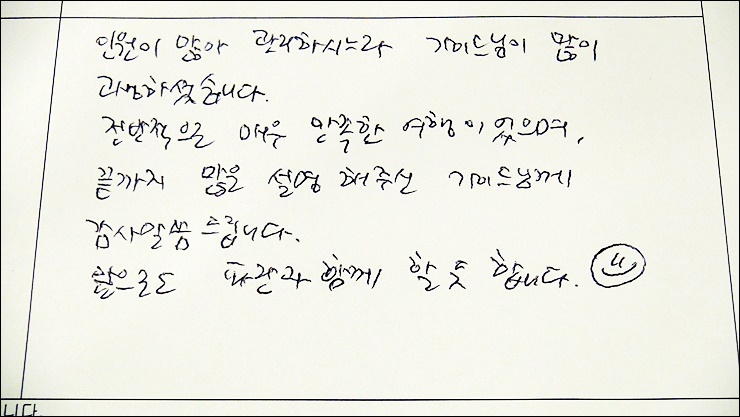 인원이 많아 관리하시느라 가이드님이 많이
고생하셨습니다.
전반적으로 매우 만족한 여행이었으며,
끝까지 많은 설명 해주신 가이드님께
감사말씀 드립니다.
앞으로도 파란과 함께 할 듯 합니다.
니다